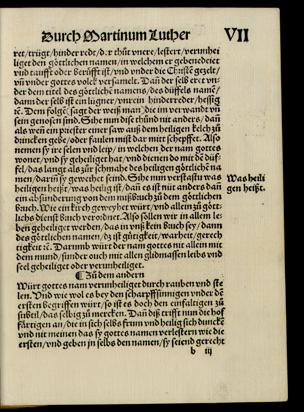 Durch Martinum Luther VII
ret/trügt/hinder redt/d.r thůt vnere/lestert/verunhei
liget den götlichen namen/in welchem er gebenedict
vnd taufft oder berüfft ist/vnd vnder die Christẽ gezelt/
vñ vnder gottes volck versamelt. Dañ der selb eret vn
der dem titel des götliche namens/des düffels namẽ/
dann der selb ist ein lügner/vnrein hinderreder/hessig
ẽ. Dem folgẽ/sagt der weiß man/die im verwandt vñ
sein genosen sind. Sihe nun dise thůnd nit anders/dañ
als weñ ein priester einer saw auß dem heiligen kelch zů
drincken gebe/oder faulen mist dar mitt schepffet. Also
nemen sy ire selen vnd leip/in welchen der nam gottes
wonet/vnd sy geheiliget hat/vnd dienen do mit dẽ düf
fel/das langt als zůr schmahe des heiligen götlichẽ na
mens/darin sy geweihet seind. Sihe nun verstastu was
heiligen heißt/was heilig ist/dañ es ist nit anders dañ
ein absünderung von dem mißbuch zů dem götlichen
bauch. Wie ein kirch geweyhet würt/vnd allein zů gött
lichs dienst bauch verordnet. Also söllen wir in allem le
ben geheiliget werden/das in vnß kein bauch sey/dann
des götlichen namen/dz ist gütigkeit/warheit/gerech
tigkeit ẽ. Darumb würt der nam gottes nit allein mit
dem mund/sunder ouch mit allen glidmassen leibs vnd
seel geheiliget oder verunheiliget.
Was heili
gen heißt.
¶ Zů dem andern
Würt gottes nam verunheiliget durch rauben vnd ste
len. Vnd wie wol es bey den scharpffsinnigen vnder dẽ
ersten begriffen würt/so ist es doch den einfaltigen zů
subtil/das selbig zů mercken. Dañ diß trifft nun die hof
fertigen an/die in sich selbs frum vnd heilig sich duncke
vnd nit meinen das sy gottes namen verlestern wie die
ersten/vnd geben in selbs den namen/sy seiend gerecht
b iij